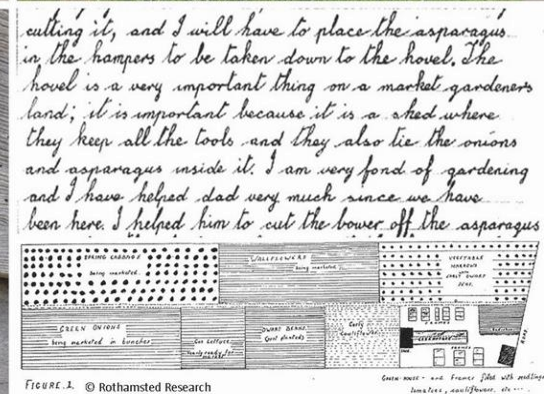 cutting it, and I will have to place the asparagus
in the hampers to be taken down to the hovel. The
hovel is a very important thing on a market gardeners
land; it is important because it is a shed where
they keep all the tools and they also tie the onions
and asparagus inside it. I am very fond of gardening
and I have helped dad very much since we have
been here. I helped him to cut the bower off the asparagus
SPRING CABBAGE
being marketed
WALLFLOWERS
being marketed
VEGETABLE
MARROWS
EARLY DWARF
GREEN ONIONS
being marketed in bunches
Cos Lettuce
nearly ready for
DWARF BEANS
(just planted)
Early
Cauliflowers
FRAMES
FRAMES
ROAD
FIGURE.1.
© Rothamsted Research
GREEN-HOUSE - and Frames filled with seedlings
tomatoes, cauliflowers, etc